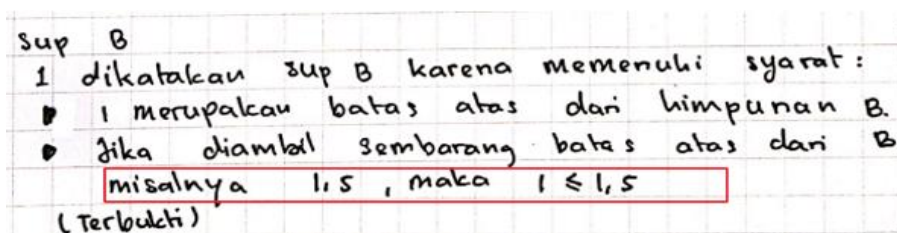 Sup B
1 dikatakan sup B karena memenuhi syarat:
• 1 merupakan batas atas dari himpunan B.
• Jika diambil sembarang batas atas dari B
misalnya 1,5, maka 1 ≤ 1,5
(Terbukti)